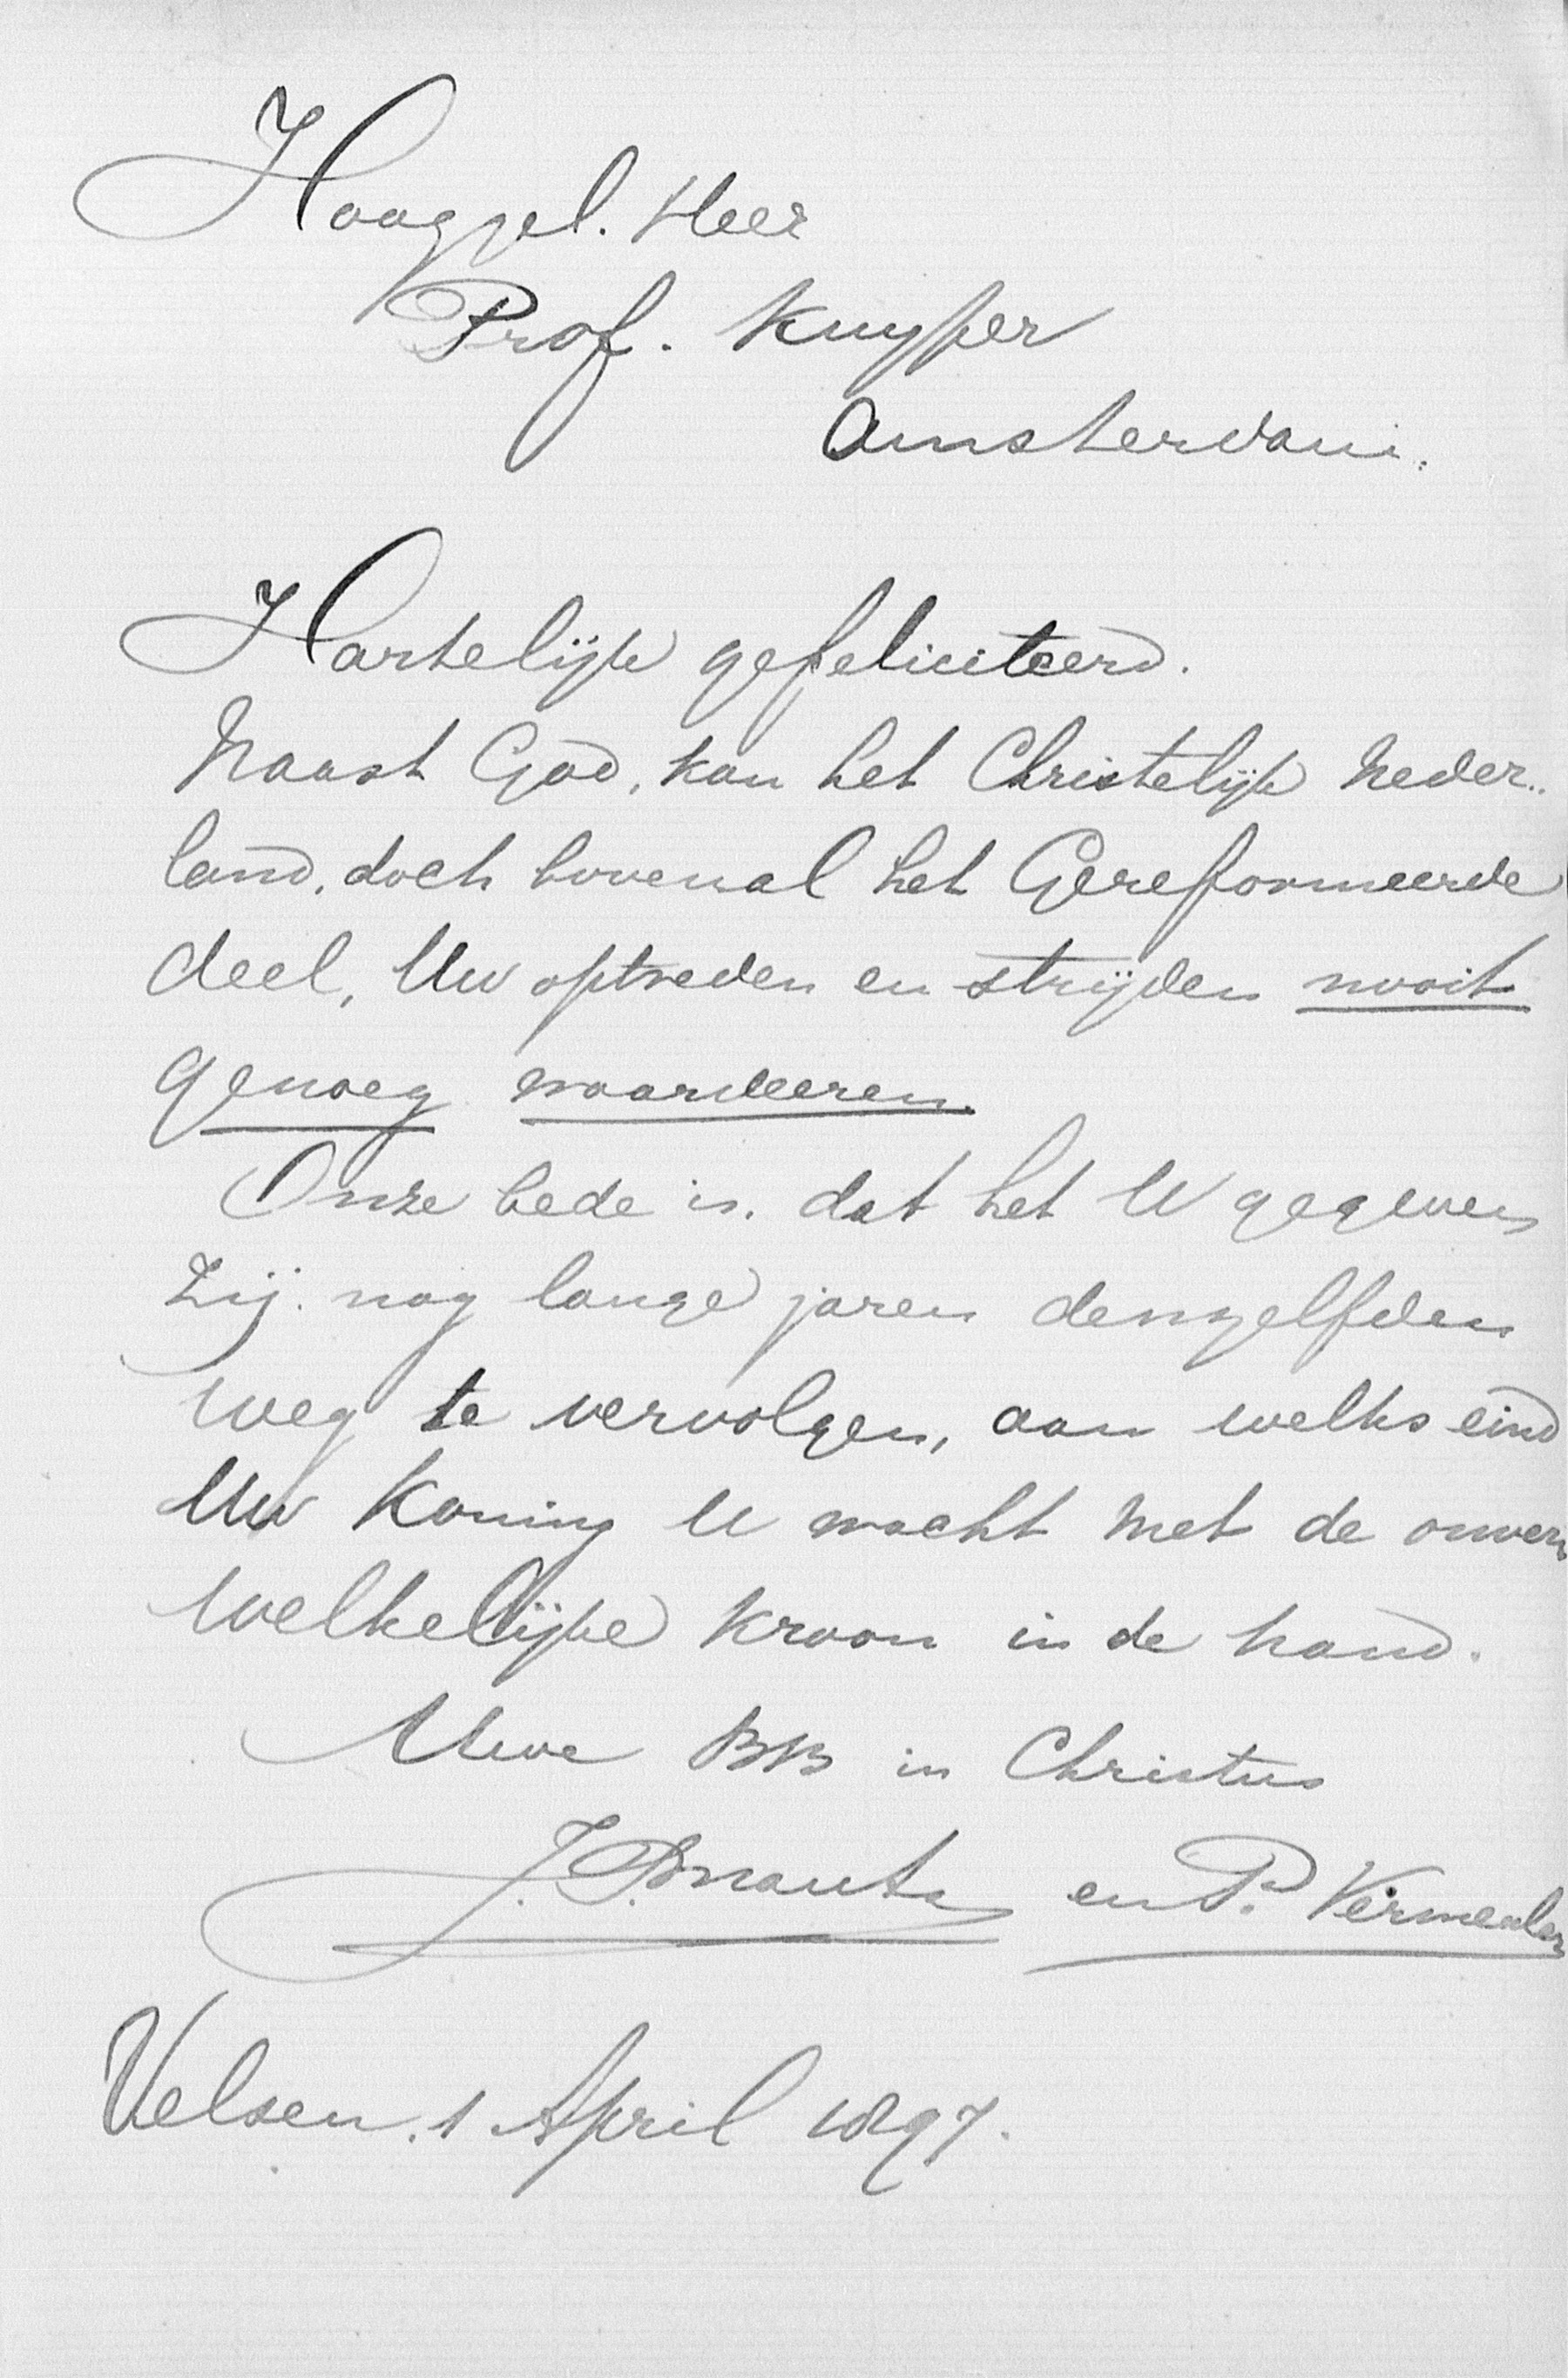 Hooggel. Heer
Prof. Kuyper
Amsterdam.
Hartelijk gefeliciteerd.
Naast God, kan het Christelijk Neder-
land, doch bovenal het Gereformeerde
deel, Uw optreden en strijden nooit
genoeg waardeeren.
Onze bede is, dat het U gegeven
zij. nog lange jaren denzelfden
weg te vervolgen, aan welks eind
Uw Koning U wacht met de onver
welkelijke kroon in de hand.
Uwe BB in Christus
J. en P. Vermeulen
Velsen, 1 April 1897.